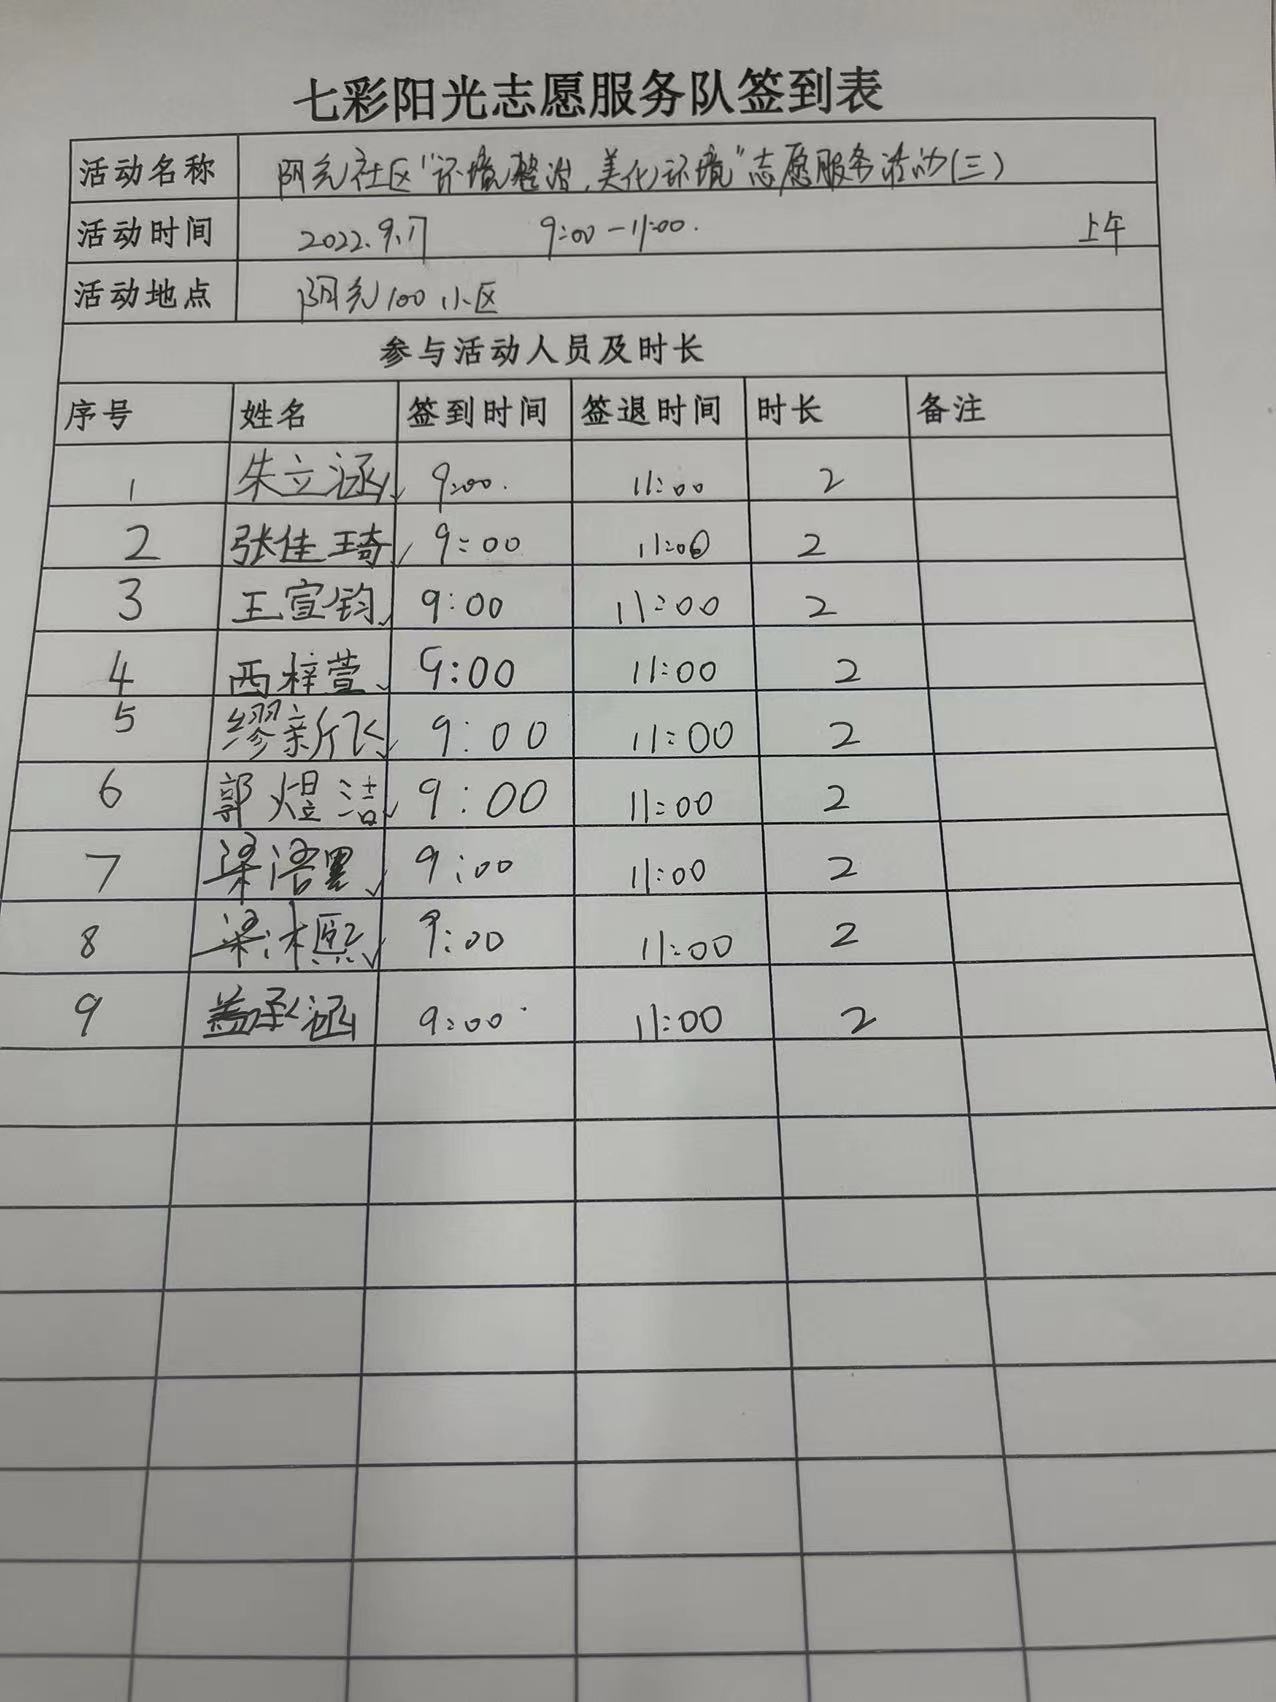 七彩阳光志愿服务队签到表
活动名称 阳光社区“环境整治,美化环境”志愿服务活动(三)
活动时间 2022.9.17 9:00-11:00. 上午
活动地点 阳光100小区
参与活动人员及时长
序号 姓名 签到时间 签退时间 时长 备注
1 朱立涵 9:00. 11:00 2
2 张佳琦 9:00 11:00 2
3 王宣钧 9:00 11:00 2
4 西梓萱 9:00 11:00 2
5 缪新飞 9:00 11:00 2
6 郭煜洁 9:00 11:00 2
7 梁 9:00 11:00 2
8 梁沐熙 9:00 11:00 2
9 盖承涵 9:00 11:00 2